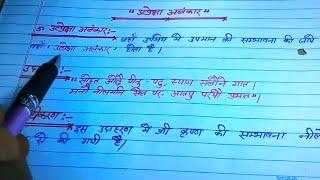 "उत्प्रेक्षा अलंकार"
जहाँ उपमेय में उपमान की सम्भावना की जाये
वहाँ 'उत्प्रेक्षा अलंकार' होता है।
"सोहत ओढ़ै पीत-पट, स्याम सलौने गात।
मनौ नीलमनि सैल पर, आतपु परयो प्रभात"।
इस उदाहरण में श्री कृष्ण की सम्भावना
से की गयी है।